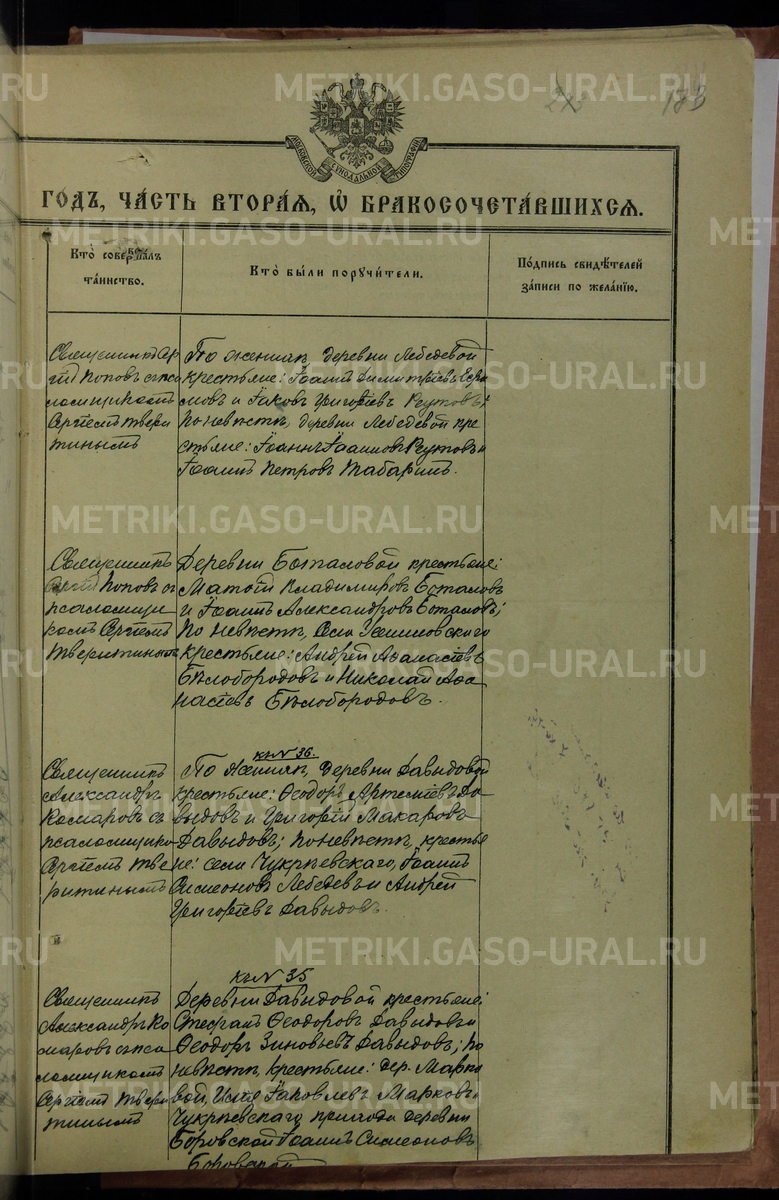 183
МОСКОВСКОЙ СѴНОДАЛЬНОЙ ТИПОГРАФІИ
ГОДЪ, ЧАСТЬ ВТОРАЯ, Ѡ БРАКОСОЧЕТАВШИХСЯ.
Кто совершалъ таинство.
Кто были поручители.
Подпись свидѣтелей записи по желанію.
Священникъ Ар
гій Поповъ съ пса
ломщикомъ
Сергѣемъ Твери
тинымъ
По женихѣ, деревни Лебедевой
крестьяне: Іоаннъ Димитріевъ
и Іаковъ Григорьевъ
по невѣстѣ, деревни Лебедевой кре
стьяне: Іоаннъ Іоанновъ и
Іоаннъ Петровъ Табаринъ.
Священникъ
Поповъ съ
псаломщи
комъ Сергѣемъ
Тверитинымъ
Деревни Боталовой крестьяне:
Матѳій Владиміровъ Боталовъ
и Іоаннъ Александровъ Боталовъ;
по невѣстѣ, села Усениновского
крестьяне: Андрей Аѳанасіевъ
Бѣлобородовъ и Николай Аѳа
насіевъ Бѣлобородовъ.
Священникъ
Александръ
Комаровъ съ
псаломщико
Сергѣемъ Тве
ритинымъ
къ № 36.
По женихѣ, деревни Давыдовой
крестьяне: Ѳеодоръ Артеміевъ Да
выдовъ и Григорій Макаровъ
Давыдовъ; по невѣстѣ, крестья
не: села Чукрѣевскаго, Іоаннъ
Симеоновъ Лебедевъ и Андрей
Григорьевъ Давыдовъ.
Священникъ
Александръ Ко
маровъ съ пса
ломщикомъ
Сергѣемъ Твери
тинымъ
къ № 35
Деревни Давыдовой крестьяне:
Стефанъ Ѳеодоровъ Давыдовъ и
Ѳеодоръ Зиновьевъ Давыдовъ; по
невѣстѣ, крестьяне: дер. Марко
вой, Илія Іаковлевъ Марковъ и
Чукрѣевскаго прихода деревни
Боровской Іоаннъ Симеоновъ
METRIKI.GASO-URAL.RU